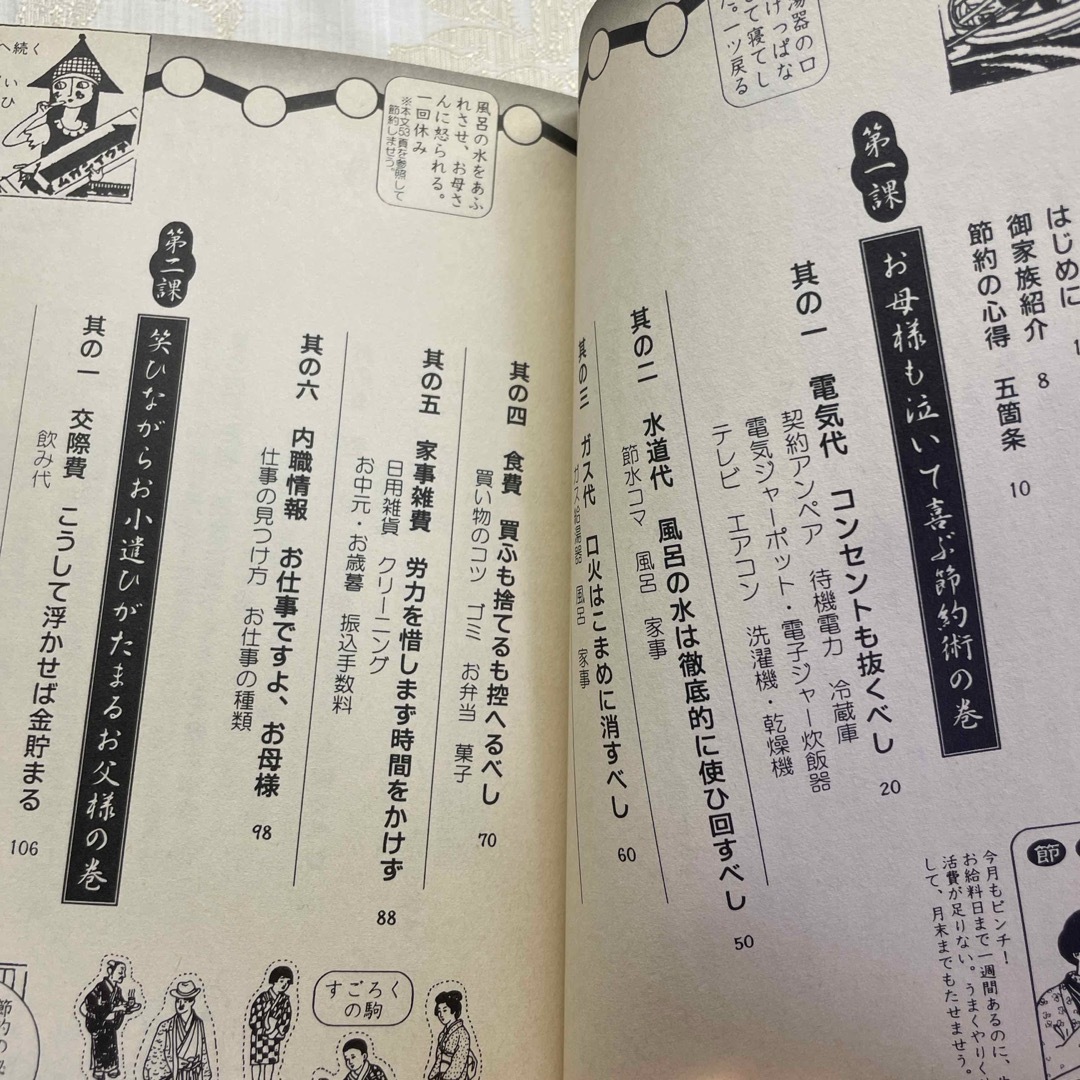 湯器の口
けっぱな
して寝てし
た。一ツ戻る
はじめに
御家族紹介 8
節約の心得 五箇条 10
第一課
お母様も泣いて喜ぶ節約術の巻
其の一 電気代 コンセントも抜くべし 20
契約アンペア 待機電力 冷蔵庫
電気ジャーポット・電子ジャー炊飯器
テレビ エアコン 洗濯機・乾燥機
其の二 水道代 風呂の水は徹底的に使ひ回すべし 50
節水コマ 風呂 家事
其の三 ガス代 口火はこまめに消すべし 60
ガス給湯器 風呂 家事
節
今月もピンチ!
お給料日まで一週間あるのに、
活費が足りない。うまくやりく
して、月末までもたせませう。
風呂の水をあふ
れさせ、お母さ
んに怒られる。
一回休み
※本文53頁を参照して
節約しませう。
其の四 食費 買ふも捨てるも控へるべし 70
買い物のコツ ゴミ お弁当 菓子
其の五 家事雑費 労力を惜しまず時間をかけず 88
日用雑貨 クリーニング
お中元・お歳暮 振込手数料
其の六 内職情報 お仕事ですよ、お母様 98
仕事の見つけ方 お仕事の種類
第二課
笑ひながらお小遣ひがたまるお父様の巻
其の一 交際費 こうして浮かせば金貯まる 106
飲み代
へ続く
い
ひ
すごろく
の駒